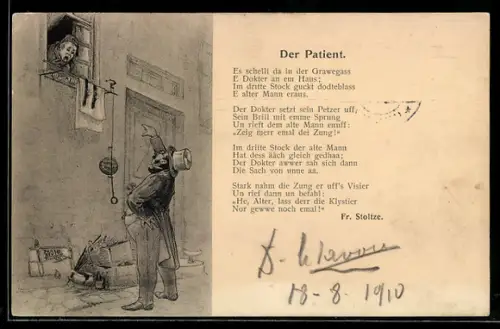 Der Patient.
Es schellt da in der Grawegass
E Dokter an em Haus;
Im dritte Stock guckt dodteblass
E alter Mann eraus.
Der Dokter setzt sein Petzer uff,
Sein Brill mit emme Sprung
Un rieft dem alte Mann enuff:
„Zeig merr emal dei Zung!"
Im dritte Stock der alte Mann
Hat dess ääch gleich gedhaa;
Der Dokter awwer sah sich dann
Die Sach von unne aa.
Stark nahm die Zung er uff's Visier
Un rief dann un befahl:
„He, Alter, lass derr die Klystier
Nor gewwe noch emal!"
Fr. Stoltze.
18-8. 1910